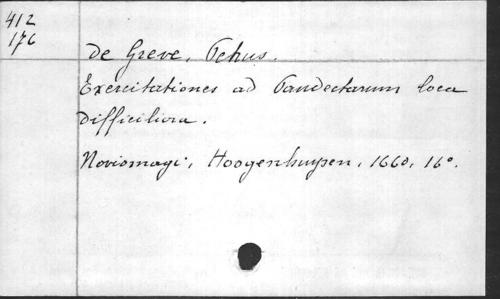 412
176
de Greve, Pehus.
Exercitationes ad Pandectarum loca
difficiliora.
Noviomagi, Hoogenhuysen, 1660, 16°.